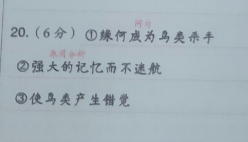 问句
20.(6分) ①缘何成为鸟类杀手
②强大的记忆而不迷航
③使鸟类产生错觉